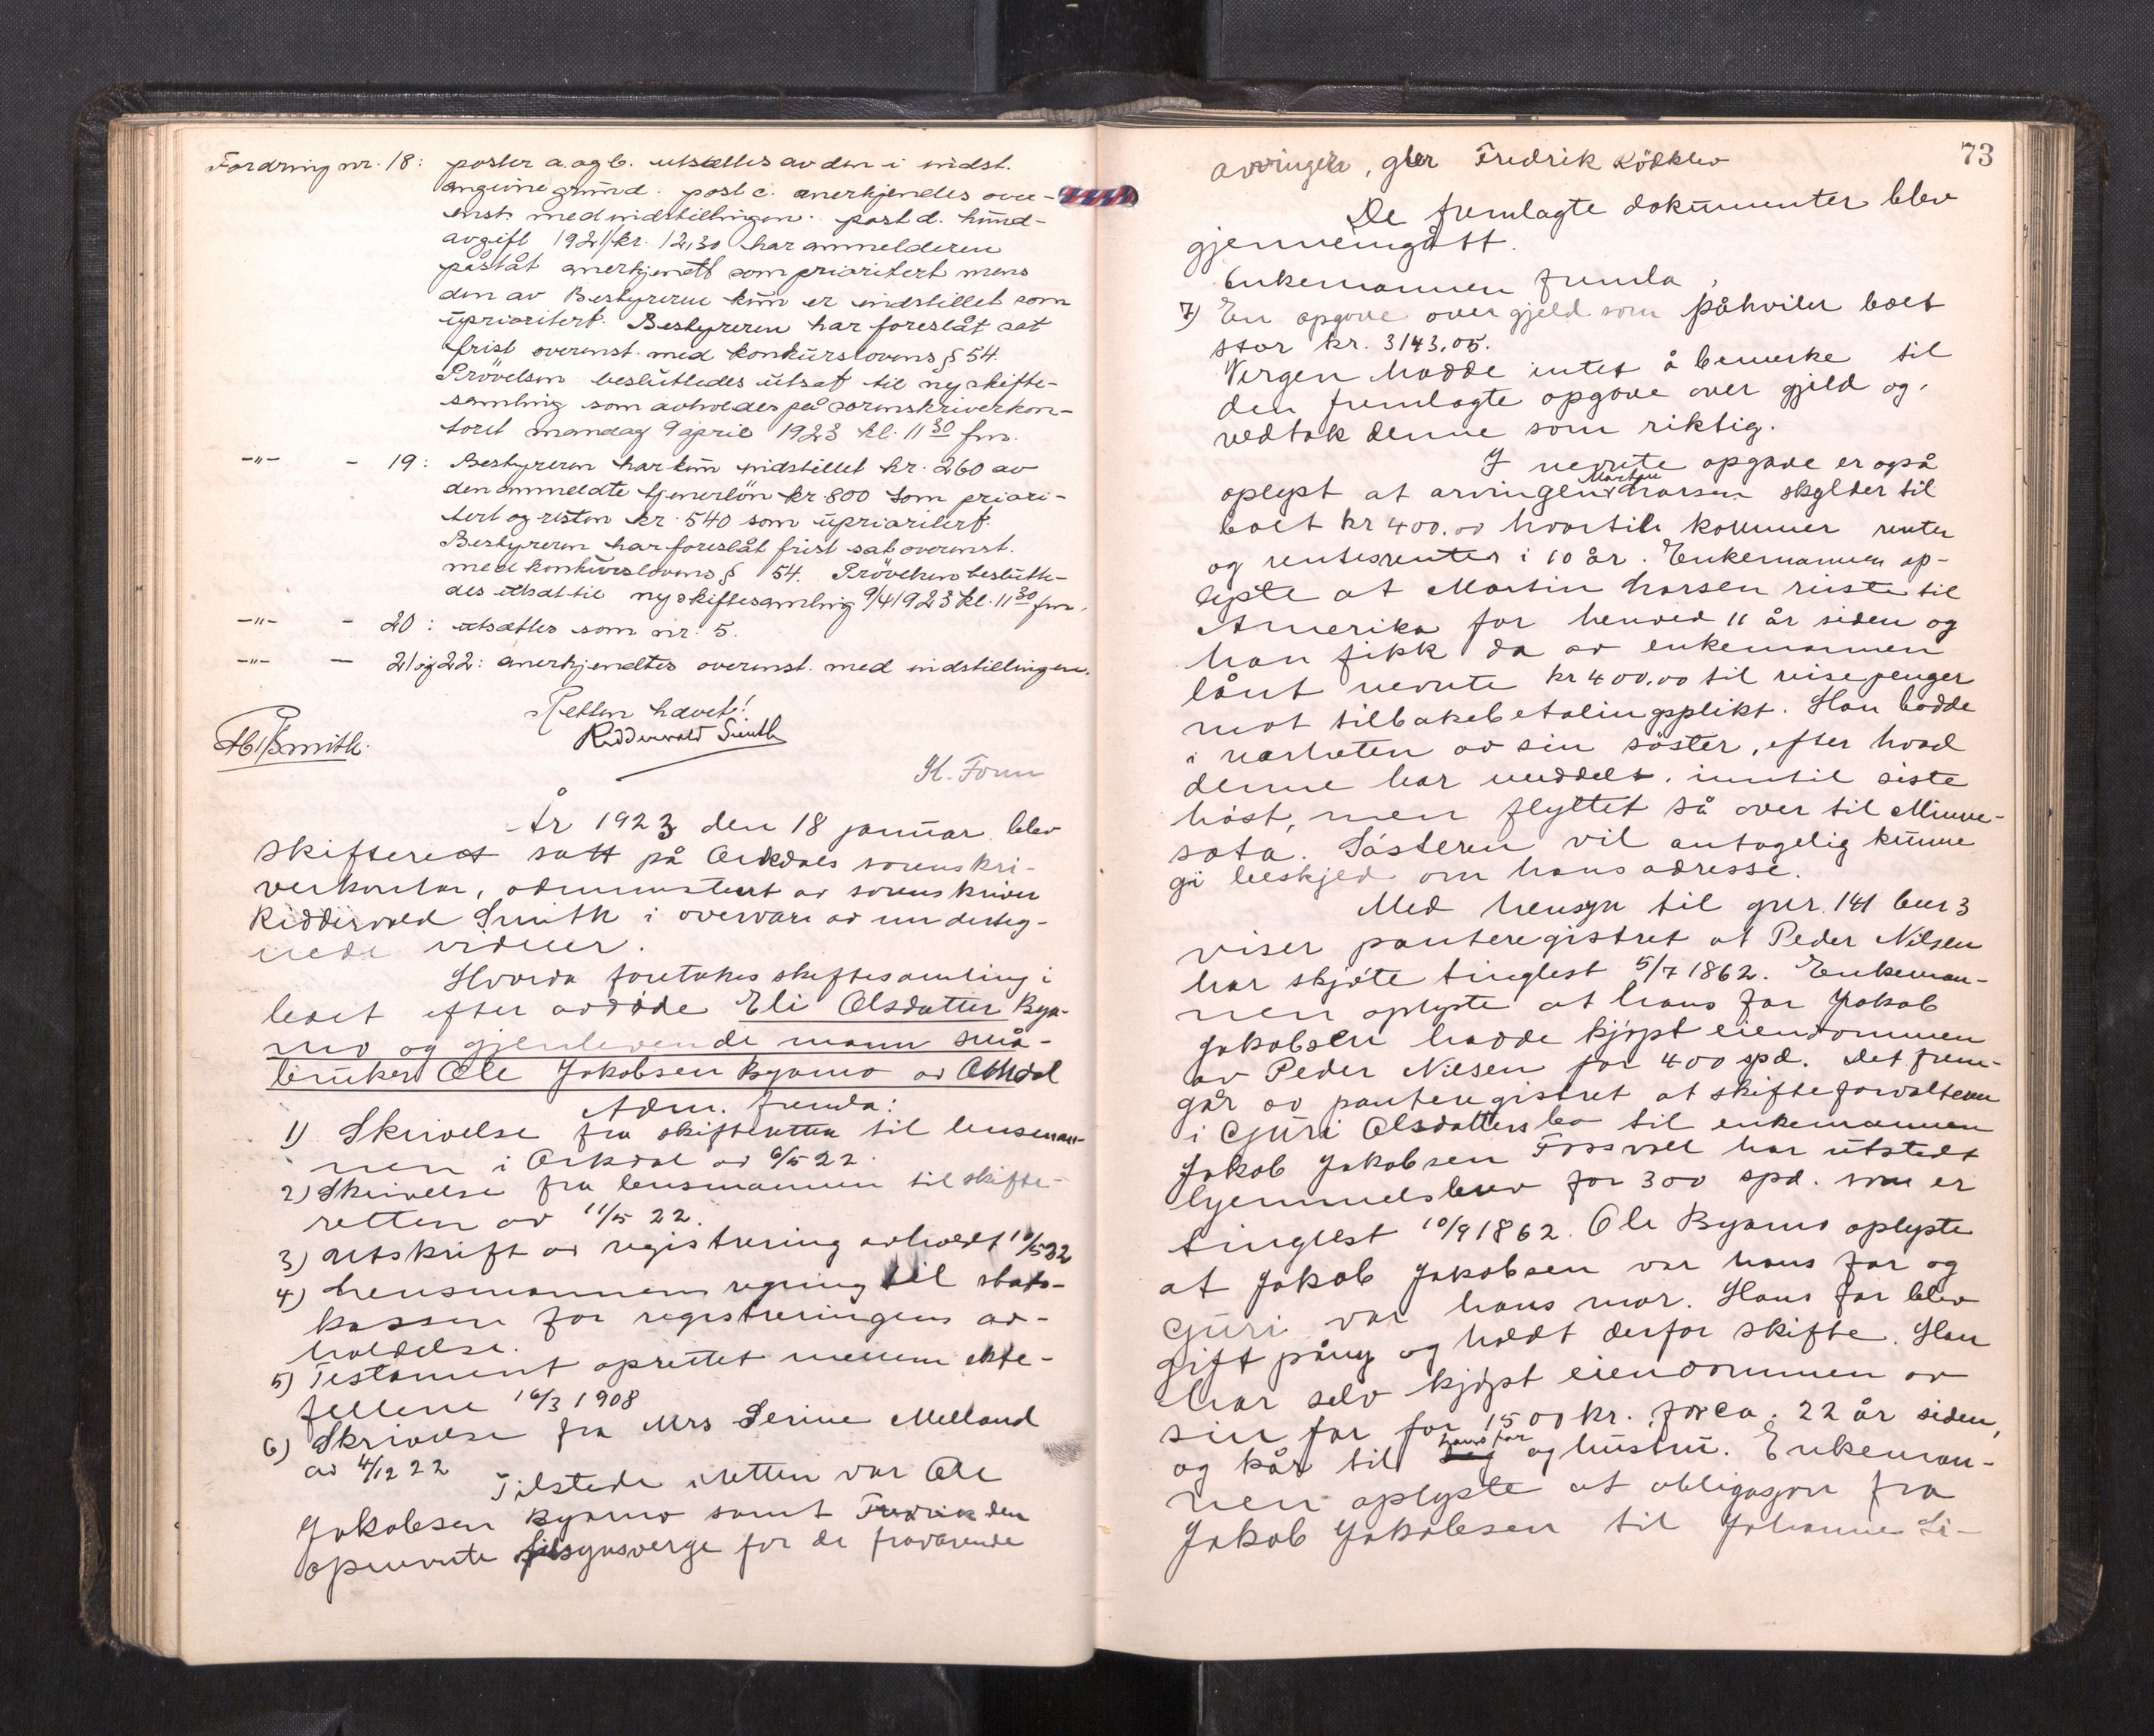 Fordring nr. 18: poster a. og b. utsættes av den i indst.
angivne grund. post c. anerkjendes over-
enst. med indstillingen. post d. hund-
avgift 1921/kr. 12,30 har anmelderen
påståt anerkjendt som prioritert mens
den av Bestyreren kun er indstillet som
uprioritert. Bestyreren har foreslåt sat
frist overenst. med konkurslovens § 54.
Prövelsen besluttedes utsat til ny skifte-
samling som avholdes på sorenskriverkon-
toret mandag 9 april 1923 kl. 11 30 fm.
-"- - 19: Bestyreren har kun indstillet kr. 260 av
den anmeldte tjenerlön kr. 800 som priori-
tert og resten kr. 540 som uprioritert.
Bestyreren har foreslåt frist sat overenst.
med konkurslovens § 54. Prövelsen beslutte-
des utsat til ny skiftesamling 9/4 1923 kl. 11 30 fm.
-"- - 20: utsættes som nr. 5.
-"- - 21 og 22: anerkjendtes overenst. med indstillingen.
Retten hævet!
Ridderwold Smith
Smith.
K. Fonn
År 1923 den 18 januar blev
skifterett satt på Orkdals sorenskri-
verkontor, administrert av sorenskriver
Ridderwold Smith i overvær av underteg-
nede vidner.
Hvorda foretokes skiftesamling i
boet efter avdöde Eli Olsdatter Bya-
mo og gjenlevende mann små-
bruker Ole Jakobsen Byamo av Orkdal
Adm. fremla:
1) Skrivelse fra skifteretten til lensman-
nen i Orkdal av 6/5 22.
2) Skrivelse fra lensmannen til skifte-
retten av 11/5 22.
3) Utskrift av registrering avholdt 10/5 22
4) Lensmannens regning til stats-
kassen for registreringens av-
holdelse.
5) Testament oprettet mellem ekte-
fellene 16/3 1908
6) Skrivelse fra Mrs Serine Melland
av 4/12 22
Tilstede i retten var Ole
Jakobsen Byamo samt Fredrik den
opnevnte tilsynsverge for de fraværende
73
arvinger, gbr Fredrik Rödklev
De fremlagte dokumenter blev
gjennemgått.
Enkemannen fremla,
7) En opgave over gjeld som påhviler boet
stor kr. 3143,05.
Vergen hadde intet å bemerke til
den fremlagte opgave over gjeld og
vedtok denne som riktig.
I nevnte opgave er også
oplyst at arvingen Martin Larsen skylder til
boet kr 400.00 hvortil kommer renter
og rentesrenter i 10 år. Enkemannen op-
lyste at Martin Larsen reiste til
Amerika for henved 11 år siden og
han fikk da av enkemannen
lånt nevnte kr 400.00 til reisepenger
mot tilbakebetalingsplikt. Han bodde
i nærheten av sin söster, efter hvad
denne har meddelt, inntil siste
höst, men flyttet så over til Minne-
sota. Sösteren vil antagelig kunne
gi beskjed om hans adresse.
Med hensyn til gnr. 141 bnr 3
viser panteregistret at Peder Nilsen
har skjöte tinglest 5/7 1862. Enkeman-
nen oplyste at hans far Jakob
Jakobsen hadde kjöpt eiendommen
av Peder Nilsen for 400 spd. Det frem-
går av panteregistret at skifteforvalteren
i Guri Olsdatters bo til enkemannen
Jakob Jakobsen Fossvoll har utstedt
hjemmelsbrev for 300 spd. som er
tinglest 10/9 1862. Ole Byamo oplyste
at Jakob Jakobsen var hans far og
Guri var hans mor. Hans far blev
gift påny og holdt derfor skifte. Han
har selv kjöpt eiendommen av
sin far for 1500 kr. for ca. 22 år siden,
og kår til hans far og hustru. Enkeman-
nen oplyste at obligasjon fra
Jakob Jakobsen til Johanne Li-